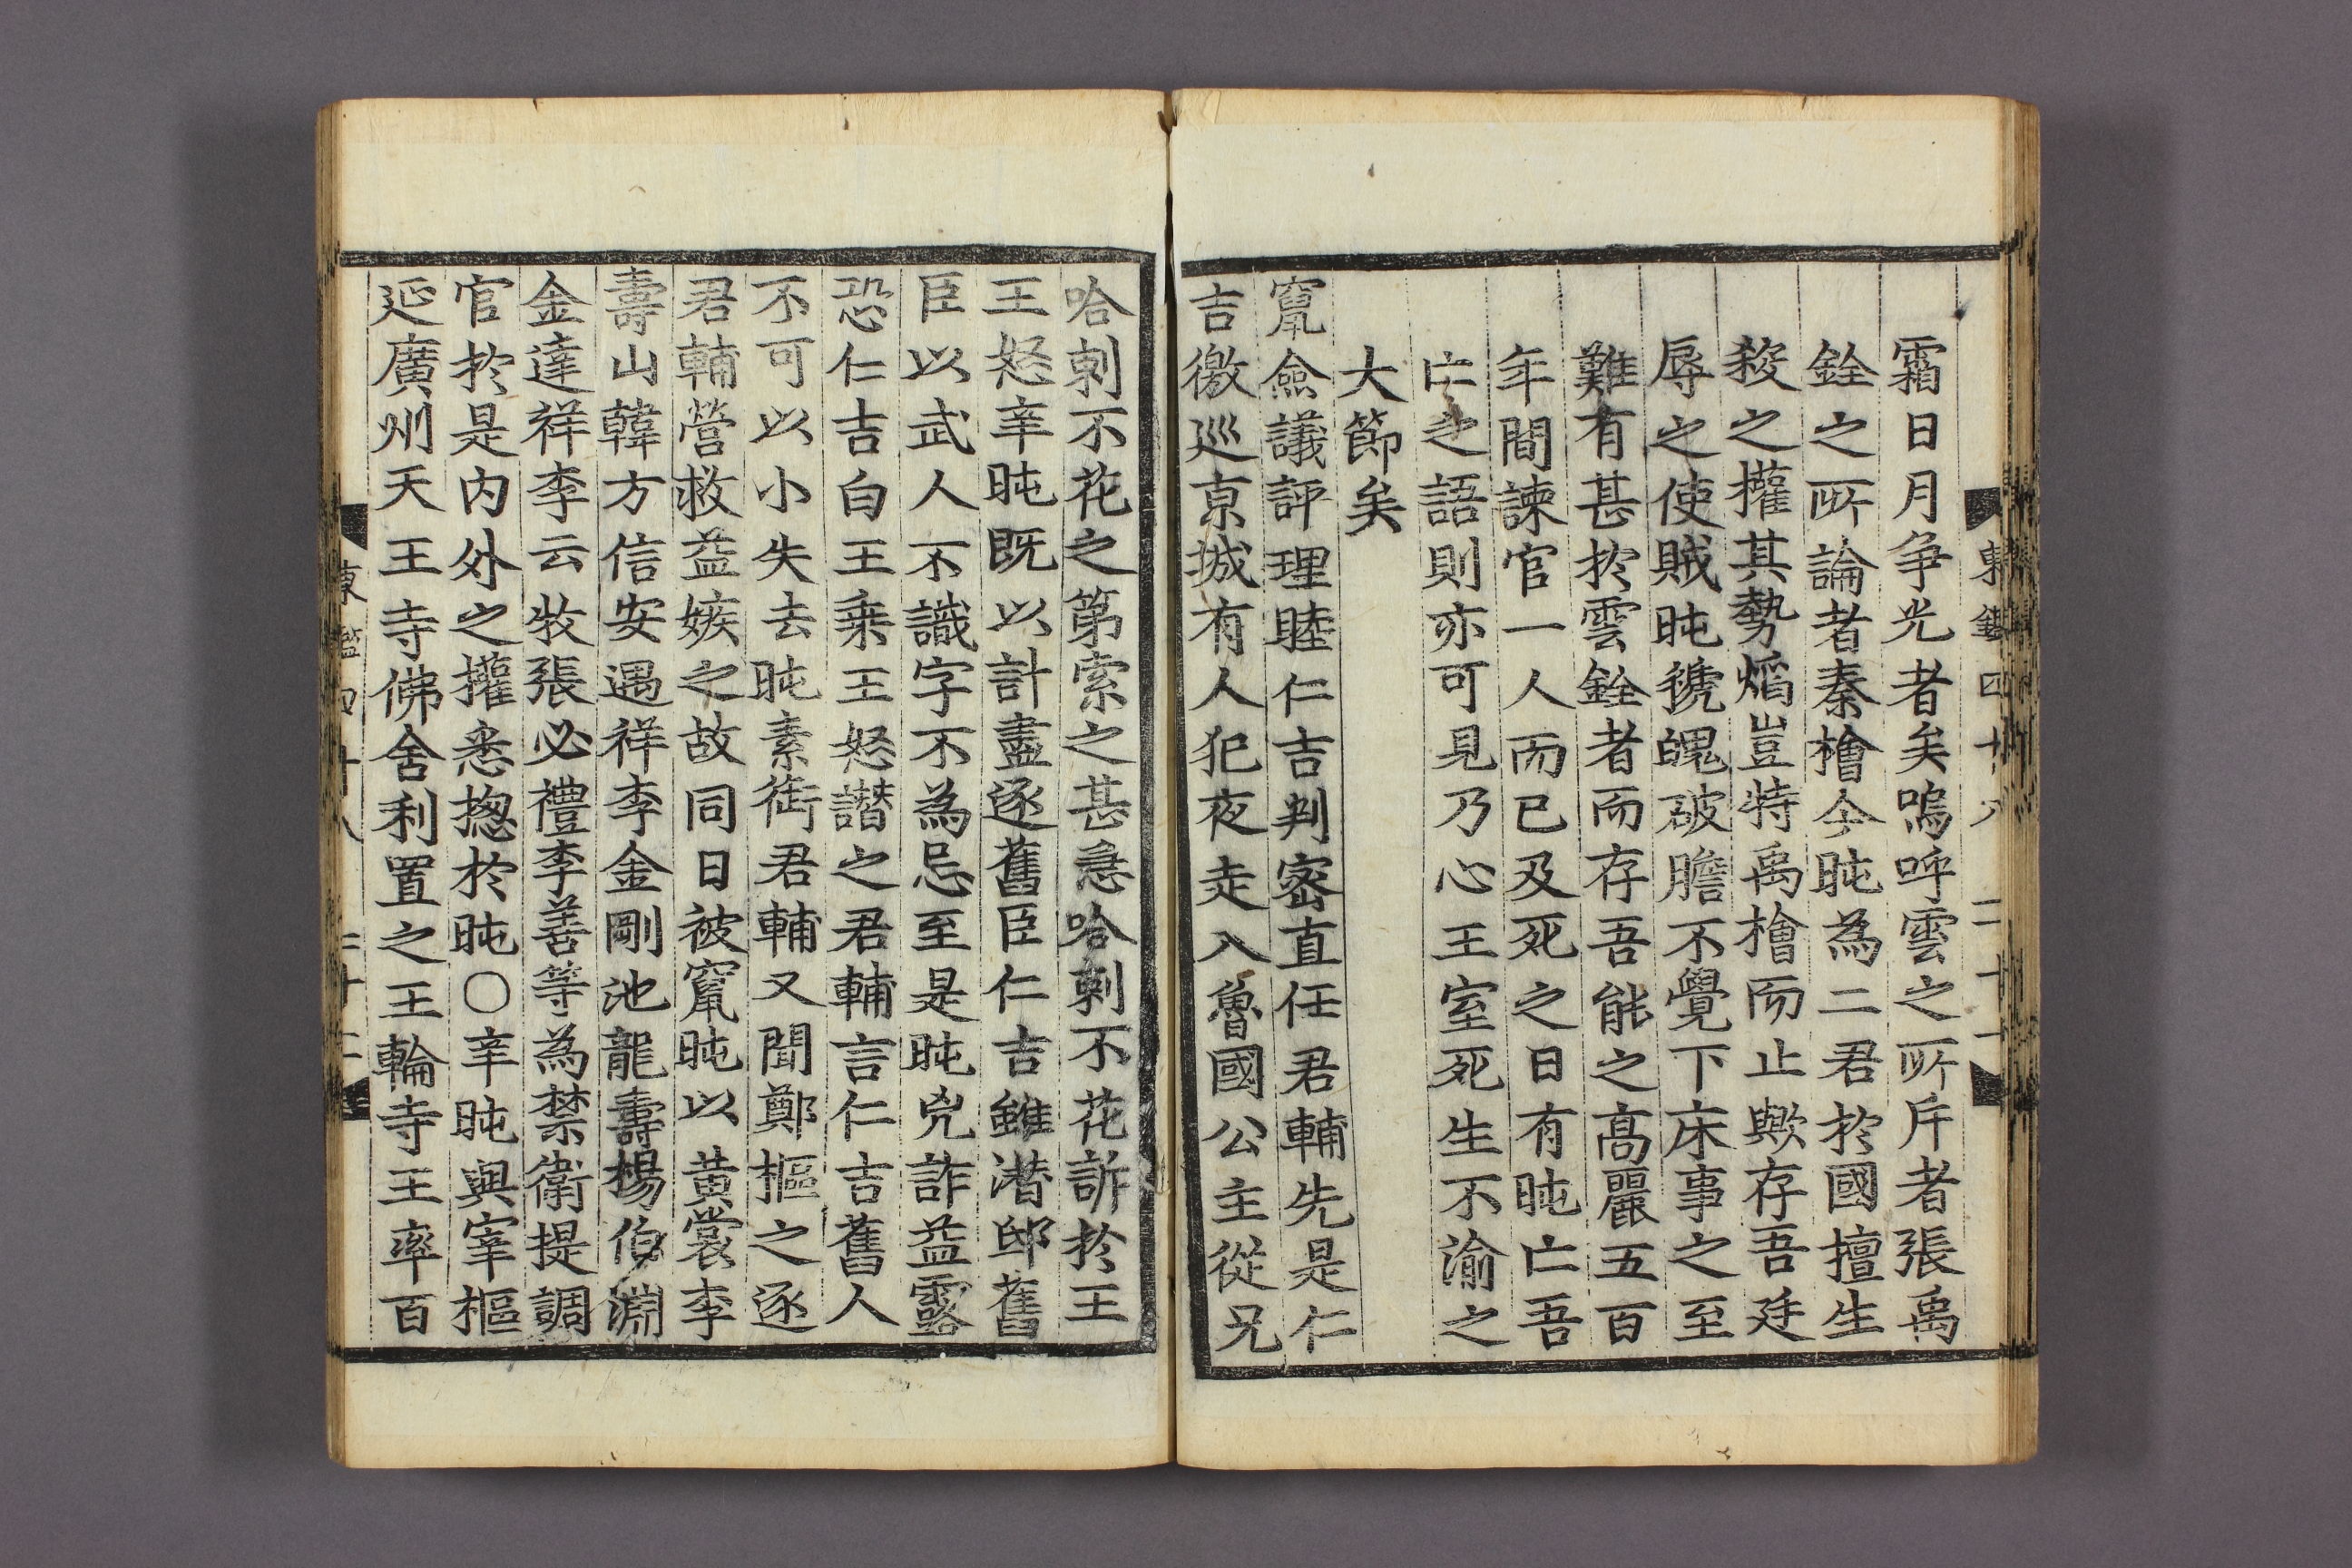 東鑑四十八 二十一
霜日月争光者矣嗚呼雲之所斥者張禹
銓之所論者秦檜今旽為二君於國擅生
殺之權其勢焰豈特禹檜而止歟存吾廷
辱之使賊旽褫魄破膽不覺下床事之至
難有甚於雲銓者而存吾能之高麗五百
年間諫官一人而已及死之日有旽亡吾
亡之語則亦可見乃心王室死生不渝之
大節矣
竄僉議評理睦仁吉判密直任君輔先是仁
吉徼巡京城有人犯夜走入魯國公主從兄
哈剌不花之第索之甚急哈剌不花訴於王
王怒辛旽既以計盡逐舊臣仁吉雖潜邸舊
臣以武人不識字不為忌至是旽兇詐益露
恐仁吉白王乗王怒譖之君輔言仁吉舊人
不可以小失去旽素銜君輔又聞鄭樞之逐
君輔營救益嫉之故同日被竄旽以黄裳李
壽山韓方信安遇祥李金剛池龍壽楊伯淵
金達祥李云牧張必禮李善等為禁衛提調
官於是内外之權悉摠於旽〇辛旽與宰樞
延廣州天王寺佛舍利置之王輪寺王率百
東鑑四十八 二十二